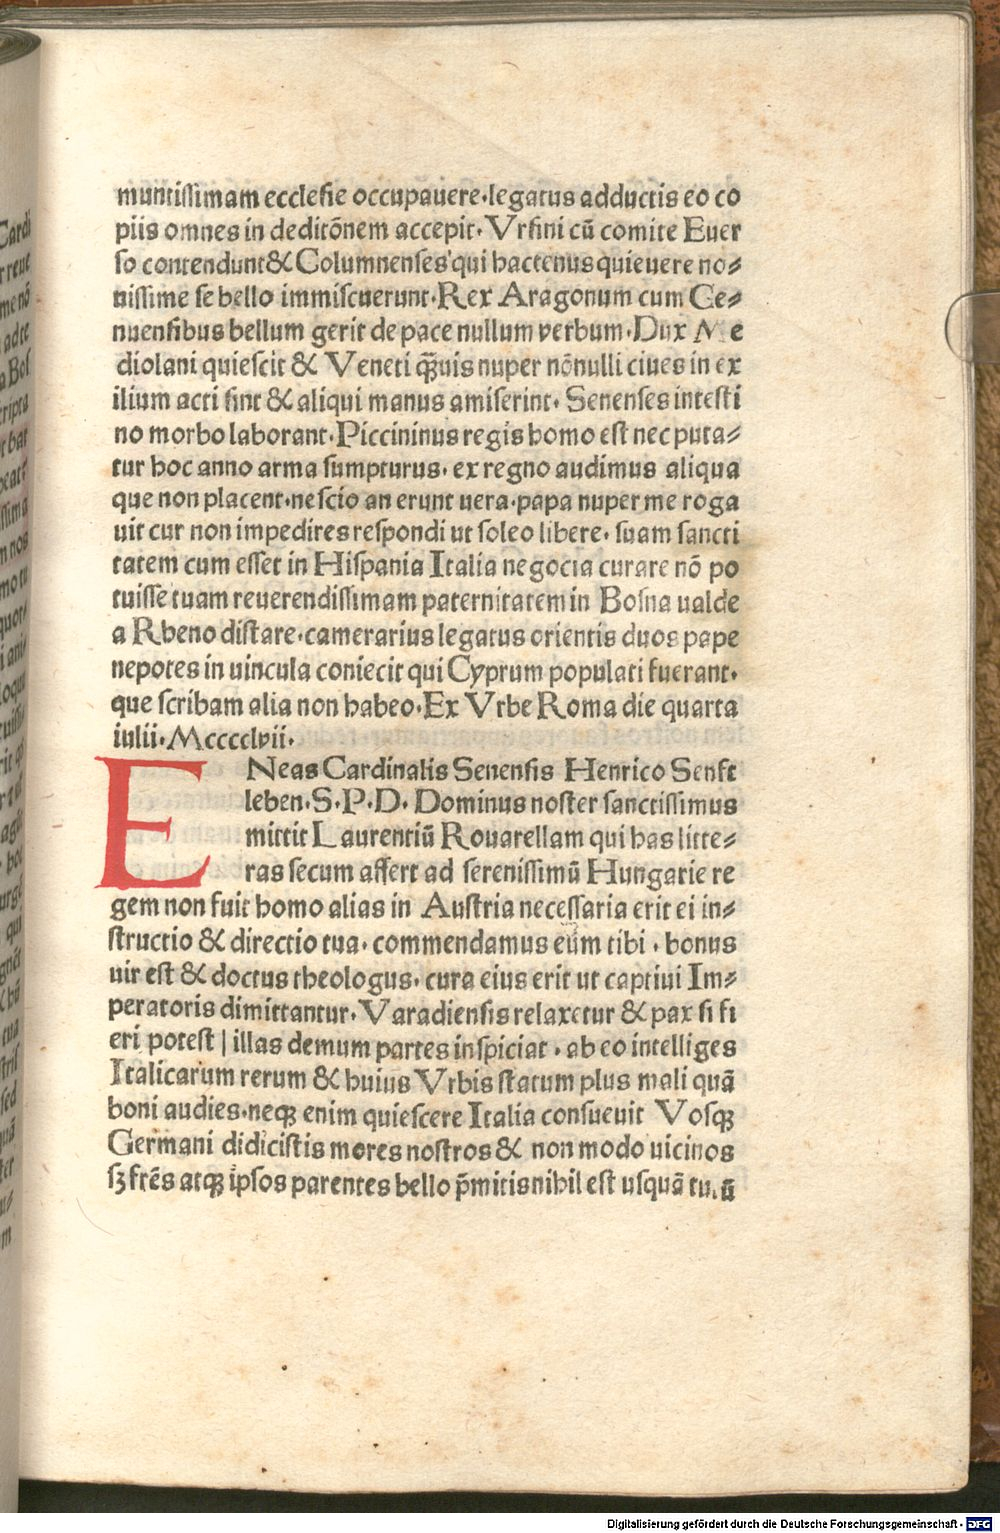 muntissimam ecclesie occupauere·legatus adductis eo co
piis omnes in deditōnem accepit· Vrsini cū comite Euer
so contendunt & Columnenses qui hactenus quieuere no⸗
uissime se bello immiscuerunt·Rex Aragonum cum Ge⸗
nuensibus bellum gerit de pace nullum verbum·Dux Me
diolani quiescit & Veneti q̄uis nuper nōnulli ciues in ex
ilium acti sint & aliqui manus amiserint· Senenses intesti
no morbo laborant·Piccininus regis homo est nec puta⸗
tur hoc anno arma sumpturus· ex regno audimus aliqua
que non placent·nescio an erunt uera·papa nuper me roga
uit cur non impedires respondi ut soleo libere· suam sancti
tatem cum esset in Hispania Italia negocia curare nō po
tuisse tuam reuerendissimam paternitatem in Bosna ualde
a Rheno distare·camerarius legatus orientis duos pape
nepotes in uincula coniecit qui Cyprum populati fuerant·
que scribam alia non habeo·Ex Vrbe Roma die quarta
iulii·Mcccclvii·
ENeas Cardinalis Senensis Henrico Senft
leben·S·P·D· Dominus noster sanctissimus
mittit Laurentiū Rouarellam qui has litte⸗
ras secum affert ad serenissimū Hungarie re
gem non fuit homo alias in Austria necessaria erit ei in⸗
structio & directio tua· commendamus eūm tibi · bonus
uir est & doctus theologus· cura eius erit ut captiui Im⸗
peratoris dimittantur· Varadiensis relaxetur & pax si fi
eri potest | illas demum partes inspiciat · ab eo intelliges
Italicarum rerum & huius Vrbis statum plus mali quā
boni audies·neqꝫ enim quiescere Italia consueuit Vosqꝫ
Germani didicistis mores nostros & non modo uicinos
sꝫ frēs atqꝫ ipsos parentes bello p̄mitis nihil est usquā
Digitalisierung gefördert durch die Deutsche Forschungsgemeinschaft - DFG